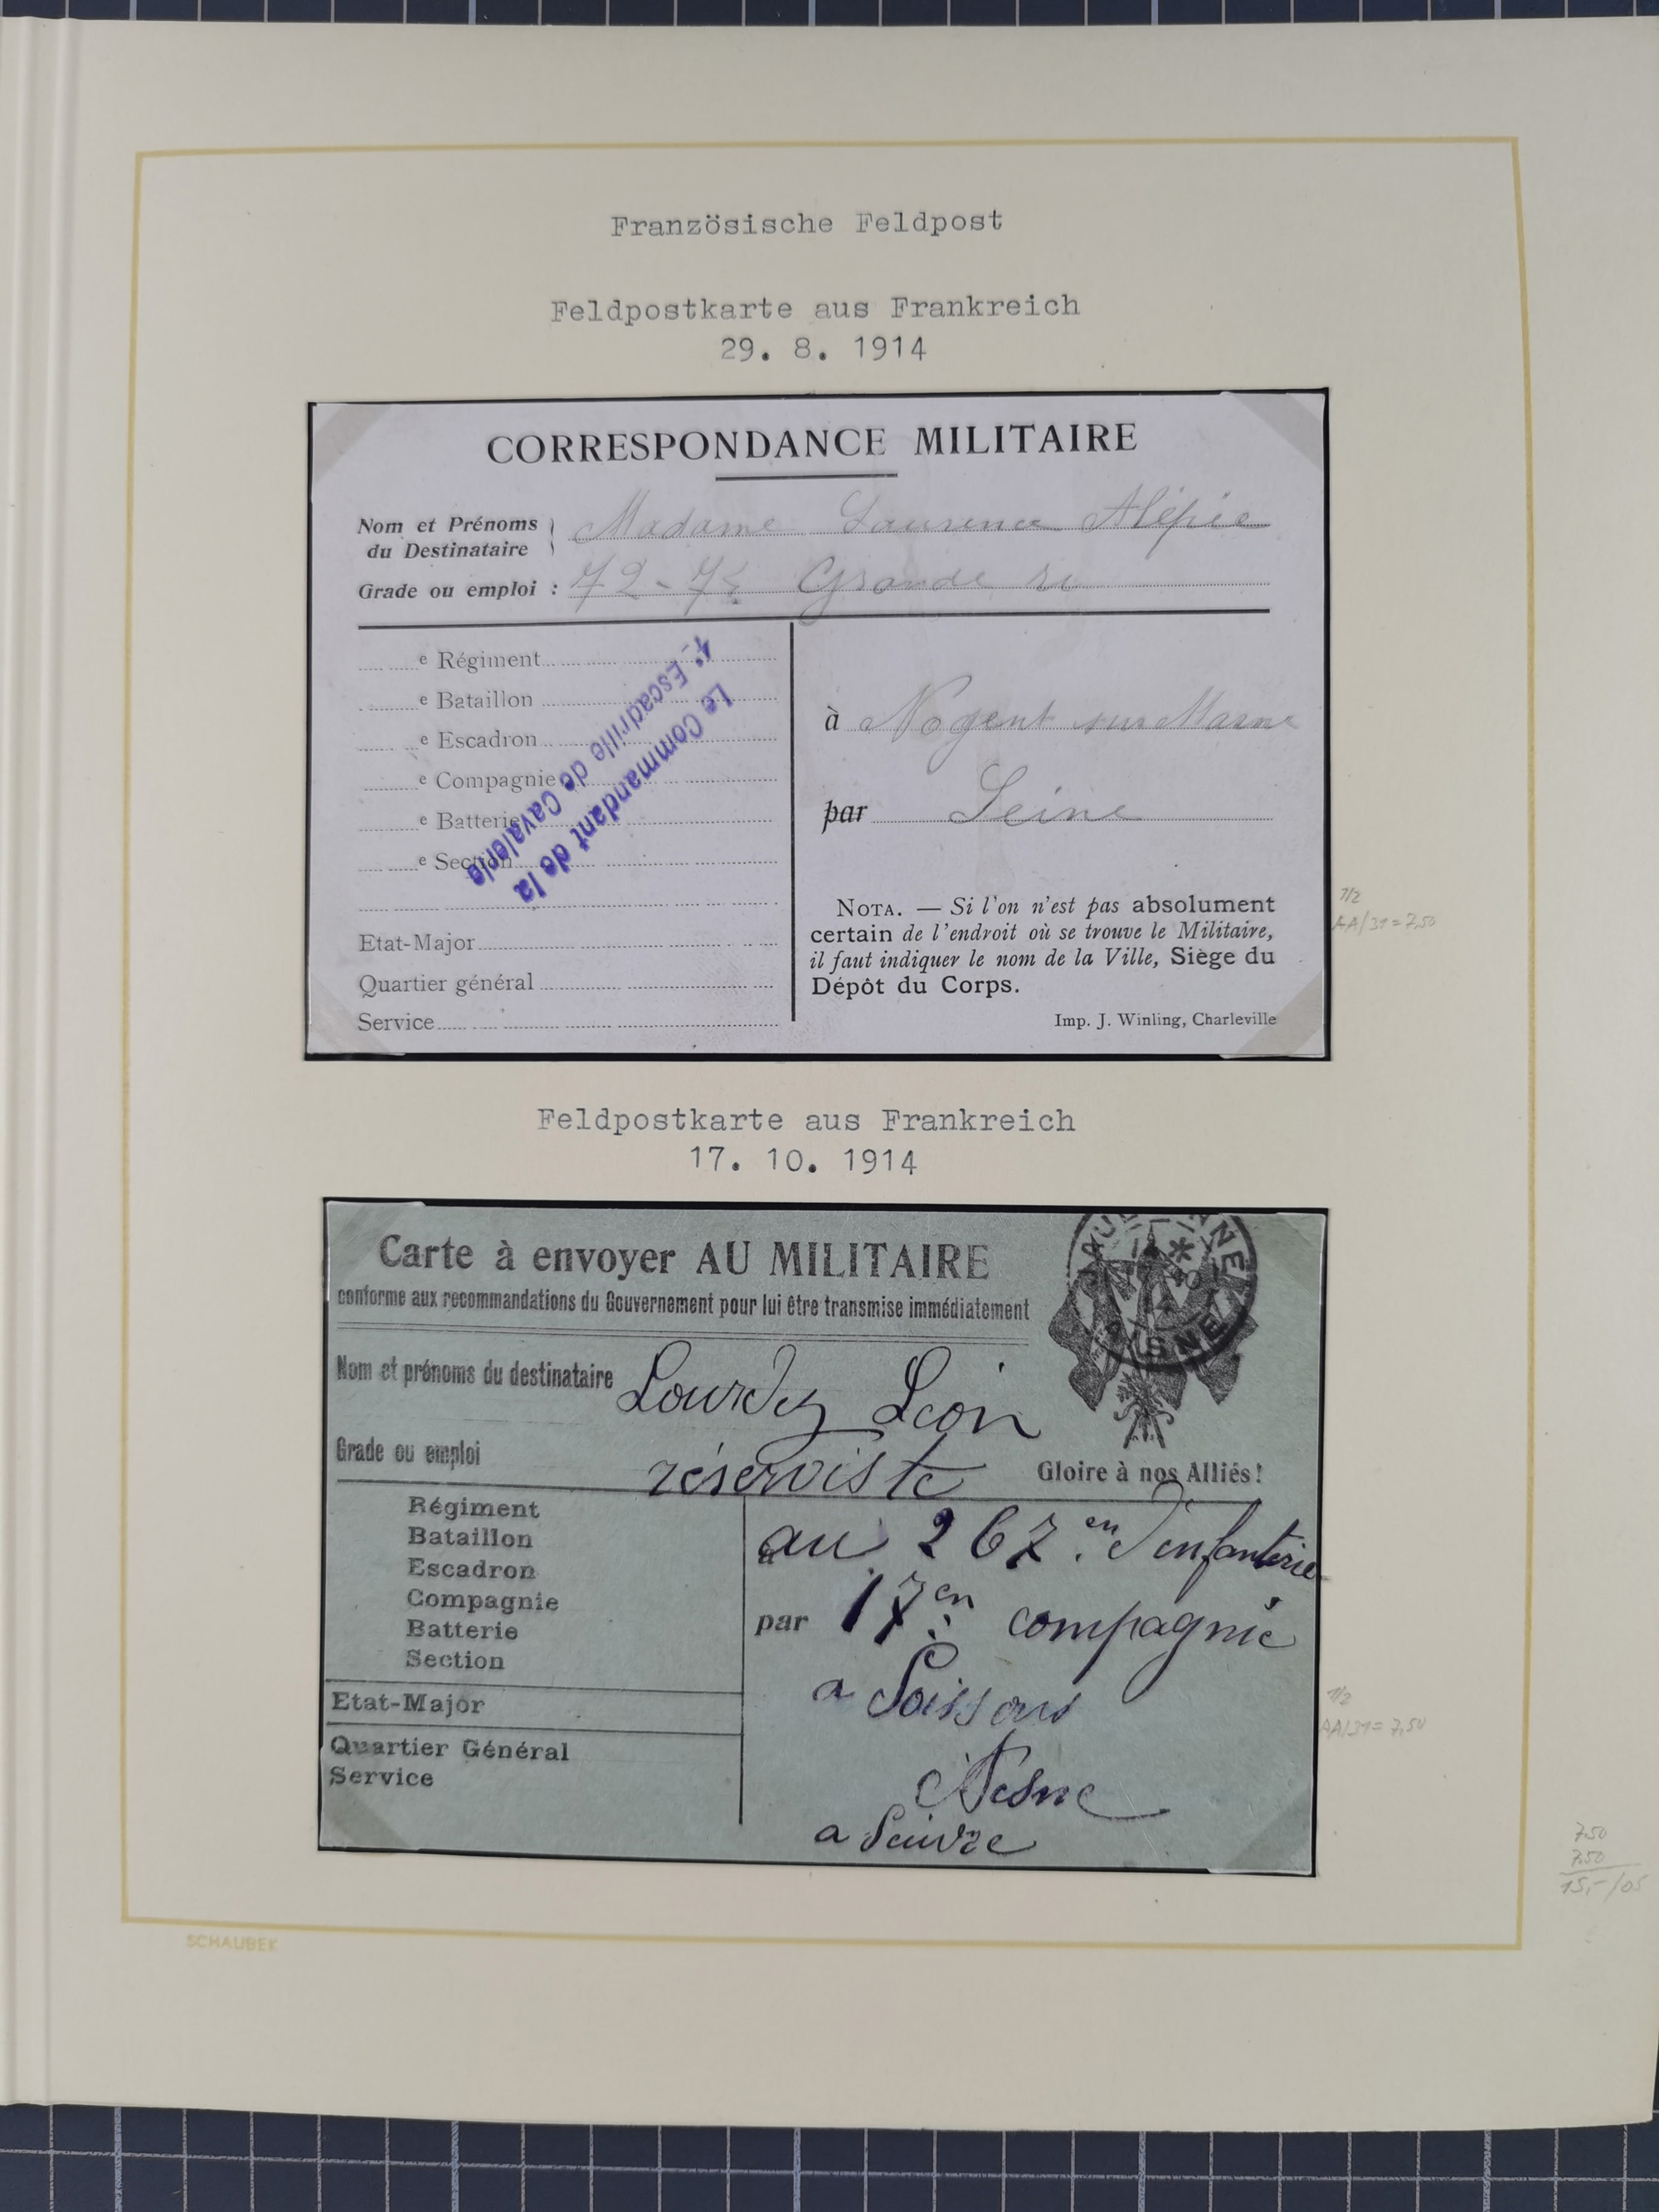 Französische Feldpost
Feldpostkarte aus Frankreich
29. 8. 1914
CORRESPONDANCE MILITAIRE
Nom et Prénoms
du Destinataire
Madame Laurence
Grade ou emploi :
72-72 Grande
e Régiment
e Bataillon
e Escadron
e Compagnie
e Batterie
e Section
Etat-Major
Quartier général
Service
Le Commandant de la
4e Escadrille de Cavalerie
à Nogent sur Marne
par Seine
NOTA. — Si l'on n'est pas absolument
certain de l'endroit où se trouve le Militaire,
il faut indiquer le nom de la Ville, Siège du
Dépôt du Corps.
Imp. J. Winling, Charleville
1/2
AA/31=7,50
Feldpostkarte aus Frankreich
17. 10. 1914
Carte à envoyer AU MILITAIRE
conforme aux recommandations du Gouvernement pour lui être transmise immédiatement
Nom et prénoms du destinataire
Lourdez Léon
Grade ou emploi
réserviste
Gloire à nos Alliés!
AISNE
Régiment
Bataillon
Escadron
Compagnie
Batterie
Section
Etat-Major
Quartier Général
Service
à
au 267.en d'infanterie
par 17en compagnie
a Soissons
Aisne
a Suivre
1/2
AA/31=7,50
7,50
7,50
15,-/05
SCHAUBEK